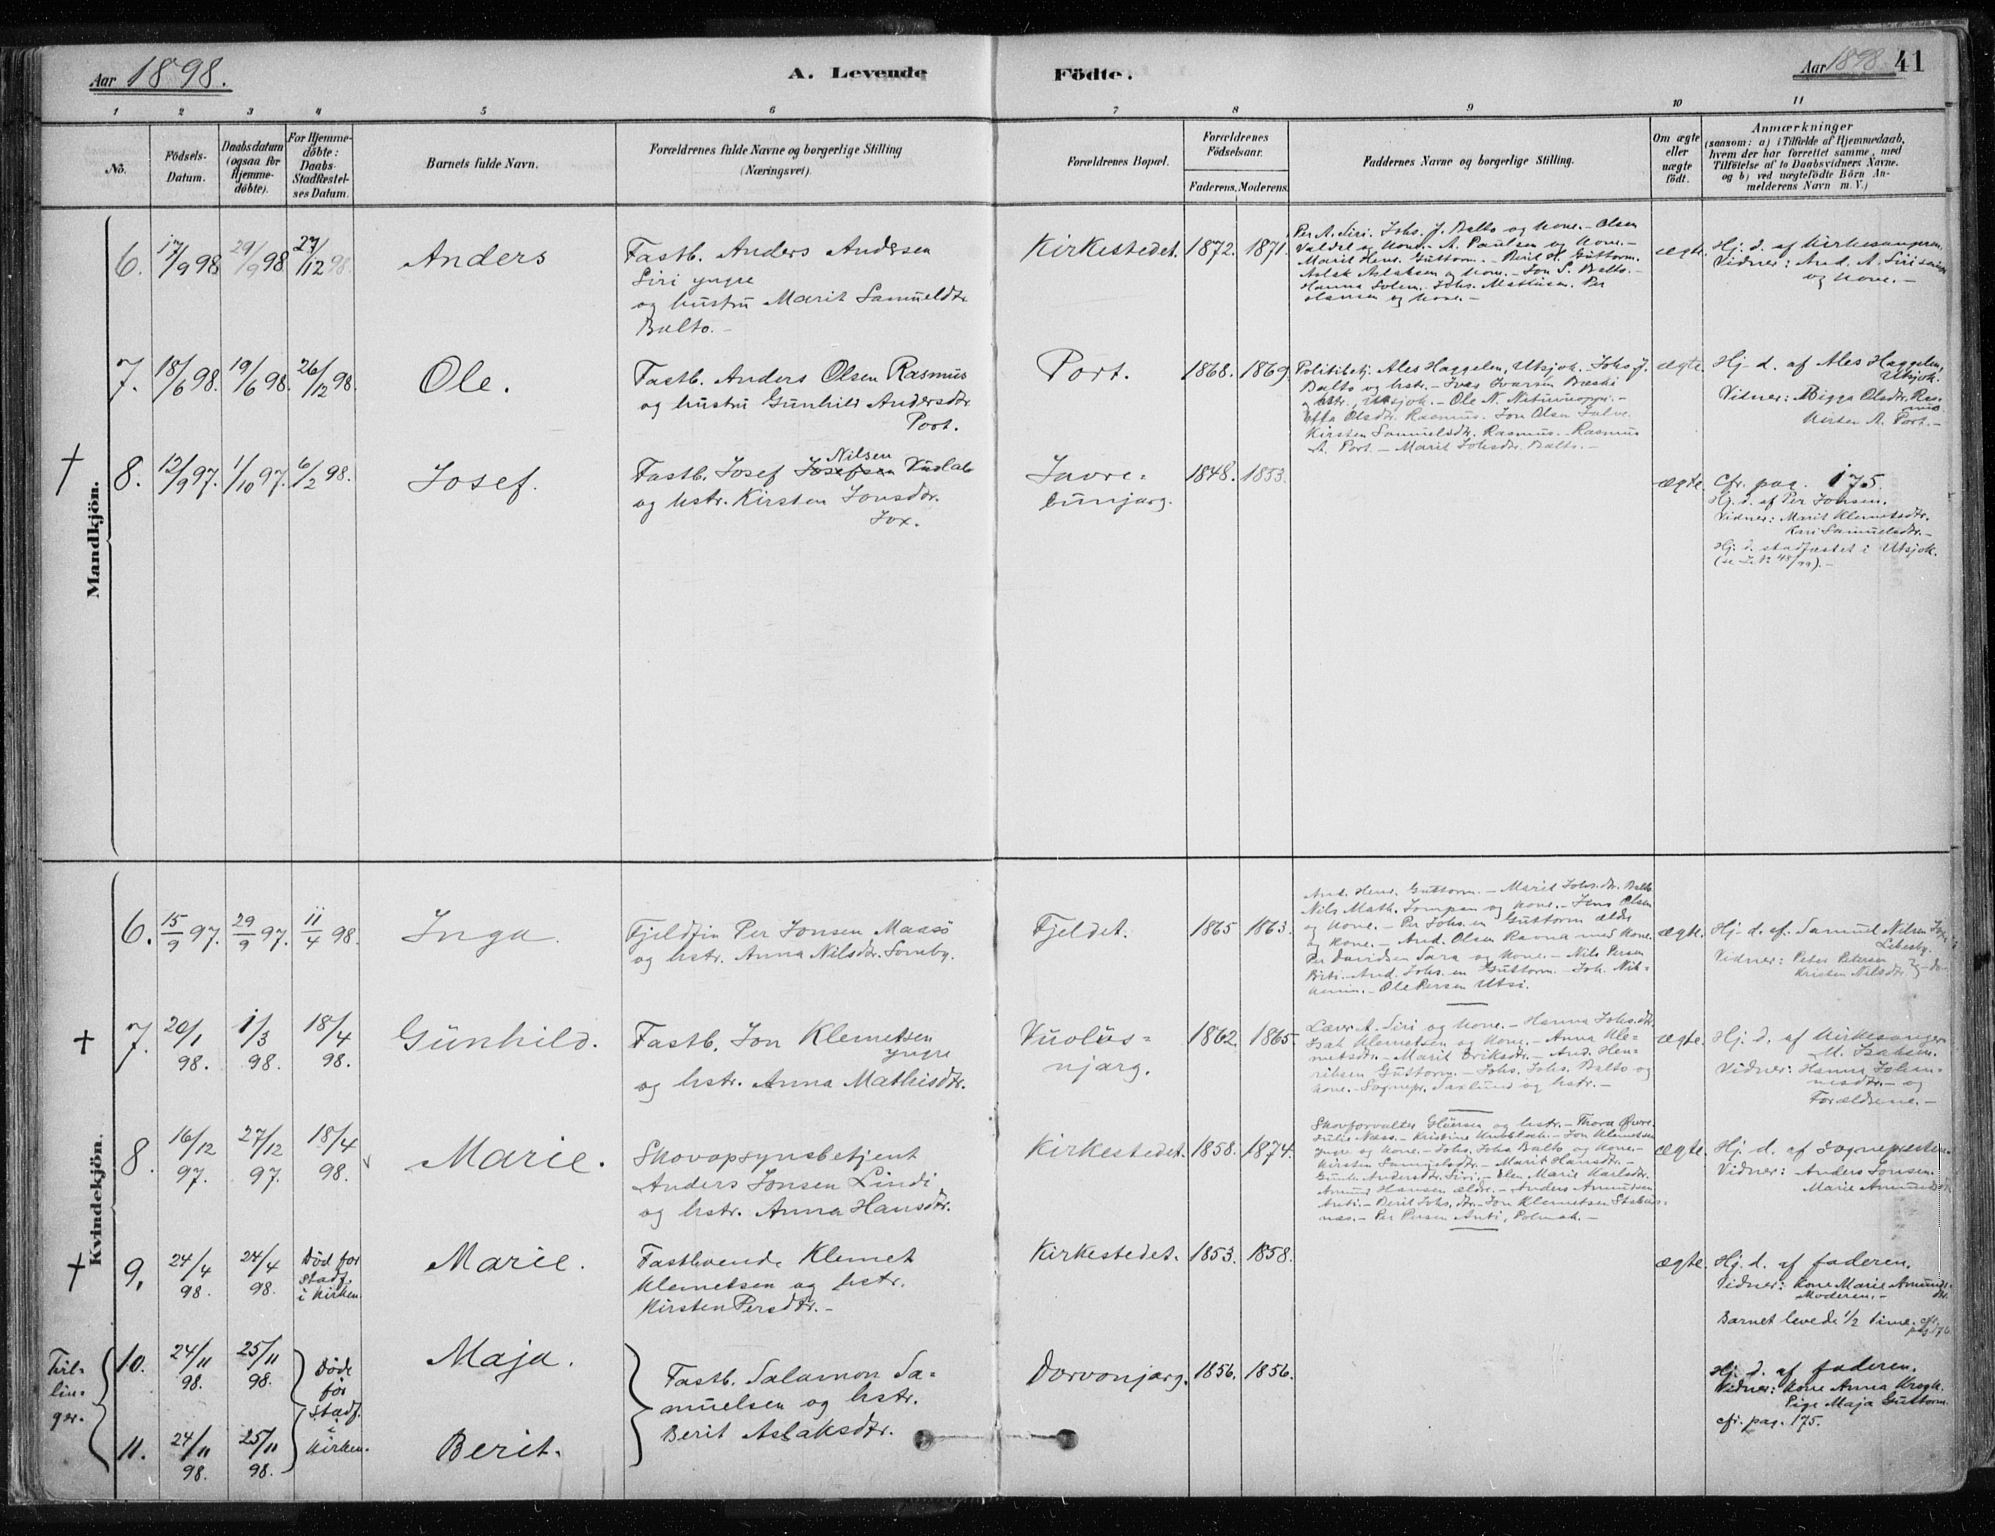 Aar 1898.
A. Levende
Födte.
Aar 1898. 41
1 2 3 4 5 6 7 8 9 10 11
No.
Födsels-
Datum.
Daabsdatum
(ogsaa for
Hjemme-
döbte).
For Hjemme-
döbte:
Daabs-
Stadfæstel-
ses Datum.
Barnets fulde Navn.
Forældrenes fulde Navne og borgerlige Stilling
(Næringsvei).
Forældrenes Bopæl.
Forældrenes
Födselsaar.
Faderens. Moderens.
Faddernes Navne og borgerlige Stilling.
Om ægte
eller
uægte
födt.
Anmærkninger
(saasom: a) i Tilfælde af Hjemmedaab,
hvem der har forrettet samme, med
Tilföielse af to Daabsvidners Navne.
og b) ved uægtefödte Börn An-
melderens Navn m. V.)
Mandkjön.
6. 17/9 98 29/9 98 27/12 98.
Anders
Fastb. Anders Andersen
Siri yngre
og hustru Marit Samuelsdtr
Balto.-
Kirkestedet. 1872. 1871.
Per A. Siri. Johs. J. Balto og kone.- Olsen
og kone.- A. Paulsen og kone.-
Marit Henr. Guttorm.- Berit H. Guttorm.
Aslak Aslaksen og kone.- Jon S. Balto.-
Hanna Solem. Johs. Mathisen. Per
Olansen og kone.-
ægte.
Hj. d. af Kirkesangeren.
Vidner: And. A. Siri
og kone.-
7. 18/6 98. 19/6 98. 26/12 98.
Ole.
Fastb. Anders Olsen Rasmus
og hustru Gunhild Andersdtr
Port.
Port. 1868. 1869.
Politibetj. Ales Haggelen, Utsjok. Johs J.
Balto og hstr.- Ivar Ivarsen Bæski
og hstr., Utsjok.- Ole N.
Olsdtr. Rasmus. Jon Olsen
Kirsten Samuelsdtr. Rasmus.- Rasmus
A. Port.- Marit Johsdtr. Balto.-
ægte.
Hj. d. af Ales Haggelen,
Utsjok.
Vidner: Bigga Olsdtr. Ras-
mus
Kirsten A. Port.-
† 8. 12/9 97. 1/10 97. 6/2 98.
Josef.
Nilsen
Fastb. Josef Josefsen Vuolab
og hstr. Kirsten Jonsdtr.
Jox.
Javre-
bunjarg.
1848. 1853.
ægte.
Cfr. pag. 175.
Hj. d. af Per Jonsen.
Vidner: Marit Klemetsdtr.
Kari Samuelsdtr.-
Hj. d. stadfæstet i Utsjok.
(se 48/99).-
Kvindekjön.
6. 15/9 97. 29/9 97. 11/4 98.
Inga.
Fjeldfin Per Jonsen Maasö
og hstr. Anna Nilsdtr. Somby.
Fjeldet. 1865. 1863.
And. Henr. Guttorm.- Marit Johs.dtr. Balto
Nils Math. Jompan og kone.- Jens Olsen
og kone.- Per Johs.en Guttorm ældre
og kone.- And. Olsen Ravna med kone.
Per Davidsen Sara og kone.- Nils Persen
And. Johs.en Guttorm. Joh. Nil-
Ole Persen Utsi.
ægte.
Hj. d. af. Samuel Nilsen
Lebesby.
Vidner: Peter Petersen
Kristen Nilsdtr.
† 7. 20/1 98. 1/3 98. 18/4 98.
Gunhild.
Fastb. Jon Klemetsen
yngre
og hstr. Anna Mathisdtr.
Vuolus-
njarg.
1862. 1865.
Lærer A. Siri og kone.- Hanna Johs.dtr.
Isak Klemetsen og kone.- Anna Kle-
metsdtr.- Marit Eriksdtr.- And. Hen-
riksen Guttorm.- Johs. Johs. Balto og
kone.- Sognepr. Saxlund og hstr.-
ægte.
Hj. d. af Kirkesanger
M. Isaksen.
Vidner: Hanna Johan-
nesdtr.- og
Forældrene.-
8. 16/12 97. 27/12 97. 18/4 98.
Marie.
Skovopsynsbetjent
Anders Jonsen Lindi
og hstr. Anna Hansdtr.
Kirkestedet. 1858. 1874.
Skovforvalter Glöersen og hstr.- Thora
Julie Næss.- Kristine Knblach.- Jon Klemetsen
yngre og kone.- Johs. Johs Balto og kone.-
Kirsten Samuelsdtr.- Marit Hansdtr.-
Andersdtr. Siri.- Elen Marie Karlsdtr.
Amund Hansen ældr.- Anders Amundsen
Anti.- Berit Johs.dtr.- Jon Klemetsen
næs.- Per Persen Anti, Polmak.-
ægte.
Hj. d. af Sognepresten.
Vidner: Anders Jonsen.
Marie
† 9. 24/4 98. 24/4 98.
Död før
Stadf.
i Kirken.
Marie.
Fastboende Klemet
Klemetsen og hstr.
Kirsten Persdtr.-
Kirkestedet. 1853. 1858.
ægte.
Hj. d. af faderen.
Vidner: Kone Marie Amunds-
dtr.
Moderen.-
Barnet levede 1/2 time. cfr.
pag 176.
Tvil-
lin-
ger.
10. 24/11 98. 25/11 98.
Maja.
11. 24/11 98. 25/11 98.
Berit.
Døde
før
Stadf.
i
Kirken.
Fastb. Salamon Sa-
muelsen og hstr.
Berit Aslaksdtr.
Dorvonjarg. 1856. 1856.
Hj. d. af faderen.
Vidner: Kone Anna Krogh.
Pige Maja Guttorm.
cfr. pag. 175.